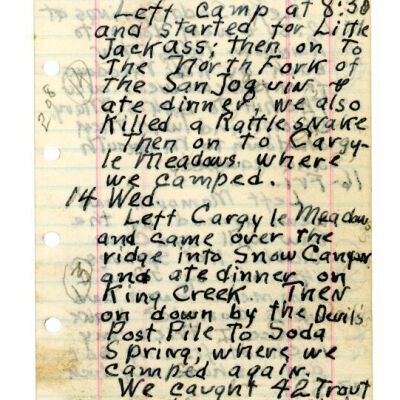 Left Camp at 8:30
and started for Little
Jackass; then on To
The North Fork of
The San Joquin &
ate dinner, we also
Killed a Rattlesnake
Then on to Cargy-
le Meadows, where
we camped.
14 Wed.
Left Cargyle Meadows
and came over the
ridge into Snow Canyon
and ate dinner on
King Creek Then
on down by the Devil's
Post Pile To Soda
Spring; where we
camped again.
We caught 42 Trout